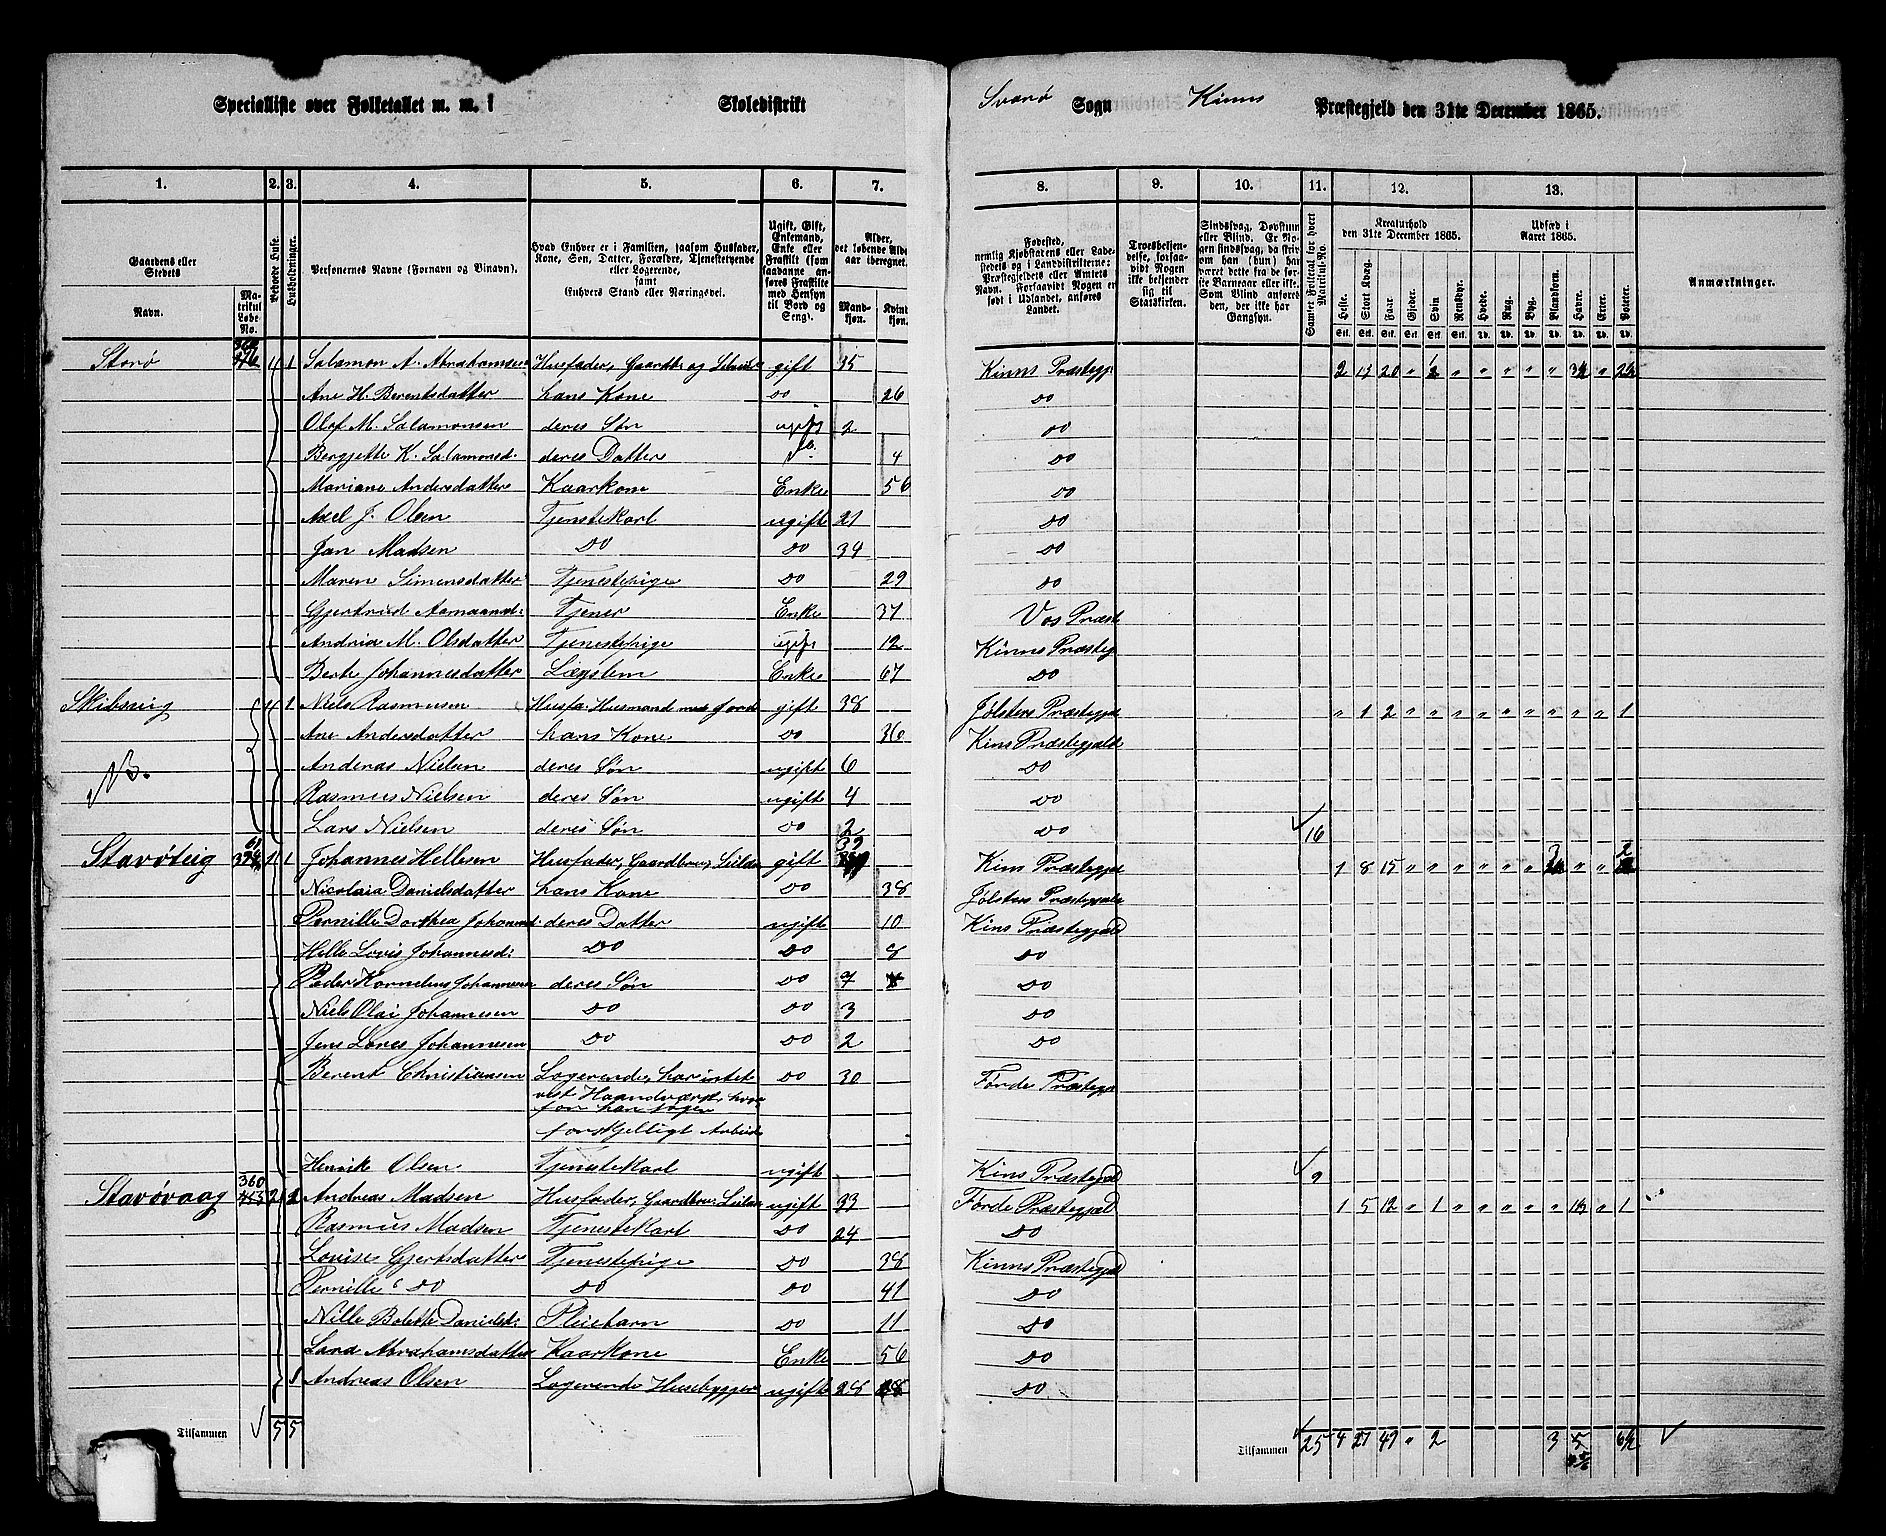 Specialliste over Folketallet m. m. i Skoledistrikt Svanø Sogn Kinns Præstegjeld den 31te December 1865.
1. 2. 3. 4. 5. 6. 7. 8. 9. 10. 11. 12. 13.
Gaardens eller Stedets
Navn.
Matrikul Løbe-No.
Beboede Huse.
Husholdninger.
Personernes Navne (Fornavn og Tilnavn).
Hvad Enhver er i Familien, saasom Husfader, Kone, Søn, Datter, Forældre, Tjenestetyende eller Logerende, samt Enhvers Stand eller Næringsvei.
Ugift, Gift, Enkemand, Enke eller Fraskilt (som saadanne anføres Fraskilte med Hensyn til Bord og Seng).
Alder, det løbende Alders iberegnet.
Mandkjøn.
Kvindkjøn.
Fødested, nemlig Kjøbstadens eller Ladestedets og i Landdistrikterne: Præstegjeldets eller Amtets Navn. Forsaavidt Nogen er født i Udlandet, anføres Landet.
Troesbekjendelse, forsaavidt Nogen ikke bekjender sig til Statskirken.
Sindssvag, Døvstum eller Blind. Er Nogen sindssvag, da skriv om han (hun) har været dette fra de første Barneaar eller ikke. Som Blind anføres den, der ikke har Gangsyn.
Samlet Folketal for hvert Matrikul-No.
Kreaturhold den 31te December 1865.
Heste. Stort Kvæg. Faar. Gjeder. Svin. Rensdyr.
Udsæd i Aaret 1865.
Hvede. Rug. Byg. Blandkorn. Havre. Erter. Poteter.
Anmærkninger.
Storø 1 1 Salamon A. Abrahamsen Husfader, Gaardb. og gift 35 Kinns Præstegj. 2 13 20 " 2 " " " " " "
Ane H. Berentsdatter hans Kone do 26 do
Olof M. Salamonsen deres Søn ugift 2 do
Bergjette K. Salamonsd. deres Datter do. 4 do
Mariane Andersdatter Kaarkone Enke 56 do
Axel J. Olsen Tjenstekarl ugift 21 do
Jan Madsen do do 34 do
Maren Simensdatter Tjenestepige do 29 do
Gjertrud Tjener Enke 37 Vos Præst
Andria M. Olsdatter Tjenestepige ugift 12 Kinns Præstegj
Berte Johannesdatter Lægslem Enke 67 do
Skibsvig 1 1 Niels Rasmusen Husfa Husmand med Jord gift 38 Jølsters Præstegjæld " 1 2 " " " " " " " " " 1
Ane Andersdatter hans Kone do 36 Kins Præstegjæld
NB. Anderas Nielsen deres Søn ugift 6 do
Rasmus Nielsen deres Søn ugift 4 do
Lars Nielsen deres Søn do 2 do 16
Stavøteig 1 1 Johannes Hellesen Husfader, Gaardbru, Seilder gift 39 Kins Præstegjæl 1 8 15 " " " " " " 3 " " 2
Nicolaia Danielsdatter hans Kone do 38 Jølsters Præstegjæld
Pernille Dorthea Johannesd deres Datter ugift 10 Kins Præstegjæld
Helle Lovis Johannesd: do do 8 do
Peder Kornelius Johannesen deres Søn do 7 do
Niels Olai Johannesen do do 3 do
Jens Johannesen do do 2 do
Berent Christiansen Logerende, har intet do 30 Førde Præstegjæ
vist Haandværk, hvor
for han søger
forskjelligt Arbeid
Henrik Olsen Tjenestekarl ugift Kins Præstegjæld 9
Stavøvaag 360 2 1 Andreas Madsen Husfader, Gaardbru, Seilder ugift 33 Førde Præstegjæld 1 5 12 " 1 " " " " " " 1
Rasmus Madsen Tjenestekarl do 24 do
Lovise Gjertsdatter Tjenestepige do 38 Kinns Præstegjæld
Pernille do do do 41 do
Nille Bolette Danielsd: Pleiebarn do 11 do
Lava Abrahamsdatter Kaarkone Enke 56 do
1 Andreas Olsen Logerende Husebygger ugift 28 do
Tilsammen 5 5
Tilsammen 25 4 27 49 " 2 3 5 6½